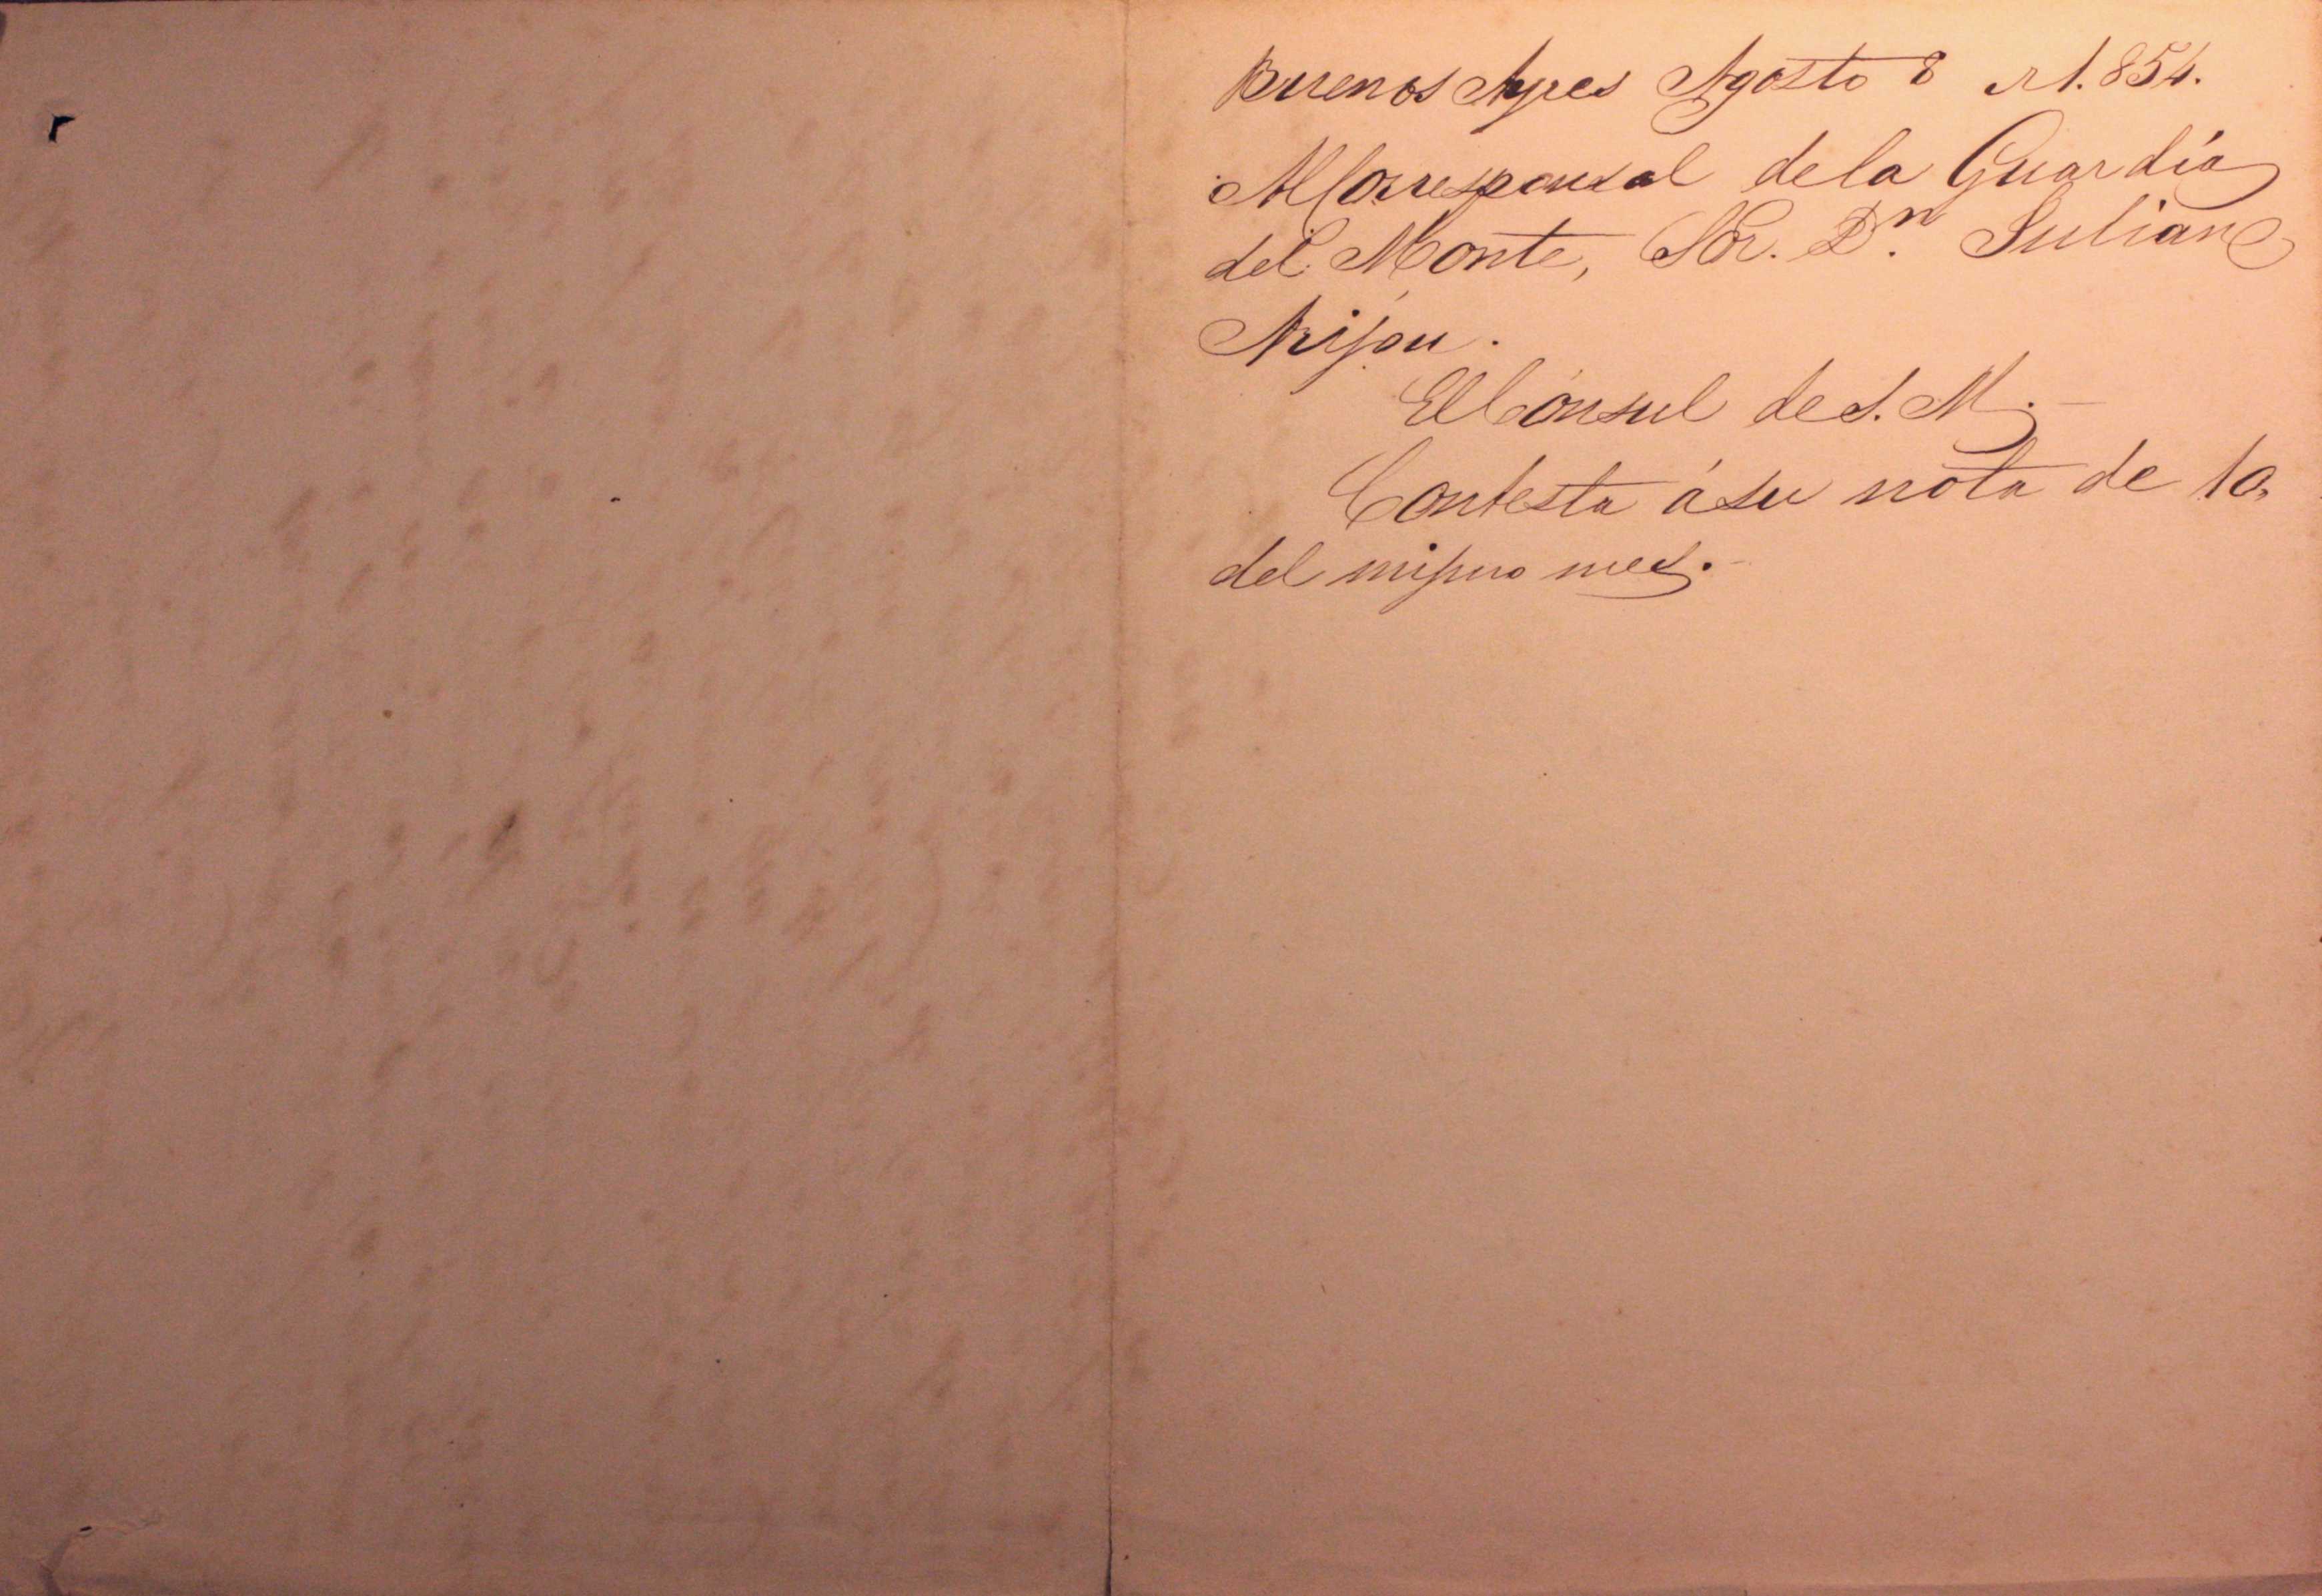 Buenos Ayres Agosto 8 de 1.854.
Al Corresponsal de la Guardia
del Monte, Sor. Dn. Julian
Arijon.
El Cónsul de S. M.
Contesta á su nota de 1o,
del mismo mes.